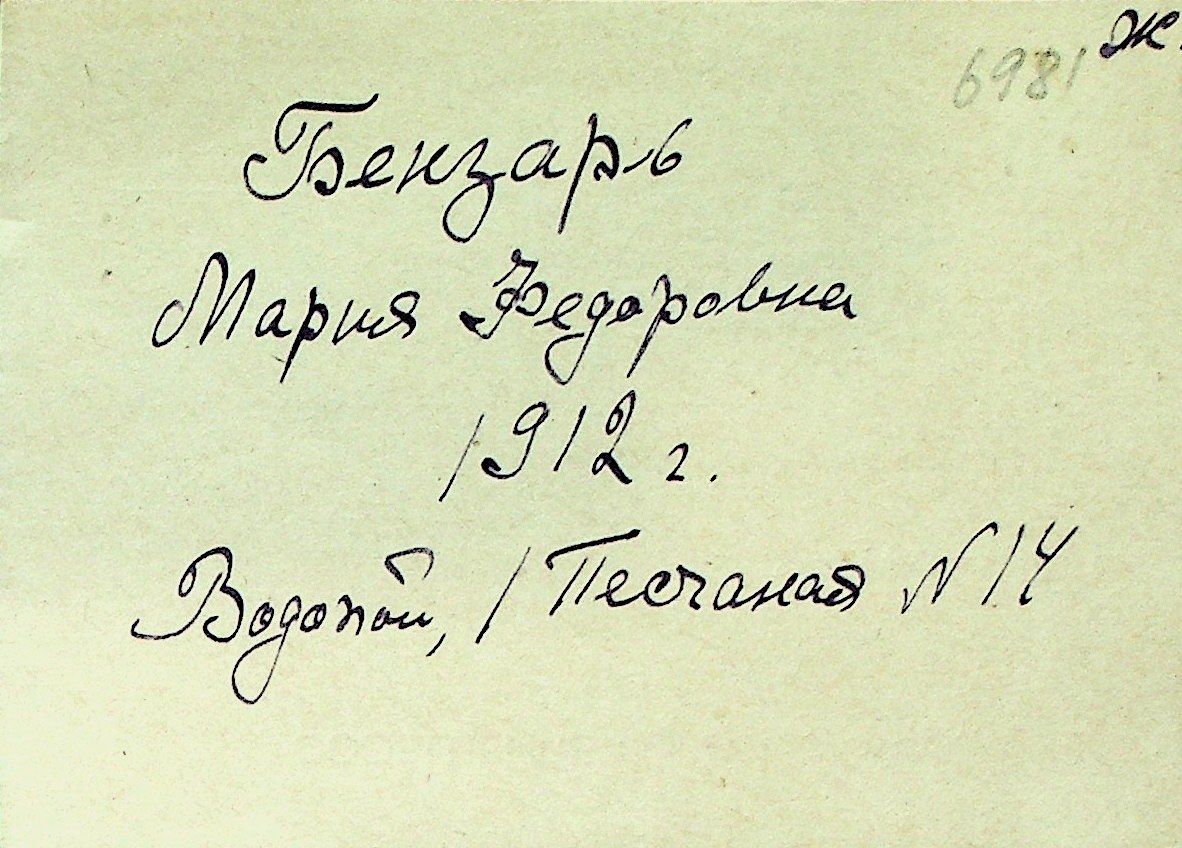 ж.
6981
Бензарь
Мария Федоровна
1912 г.
Водопой, 1 Песчаная N 14